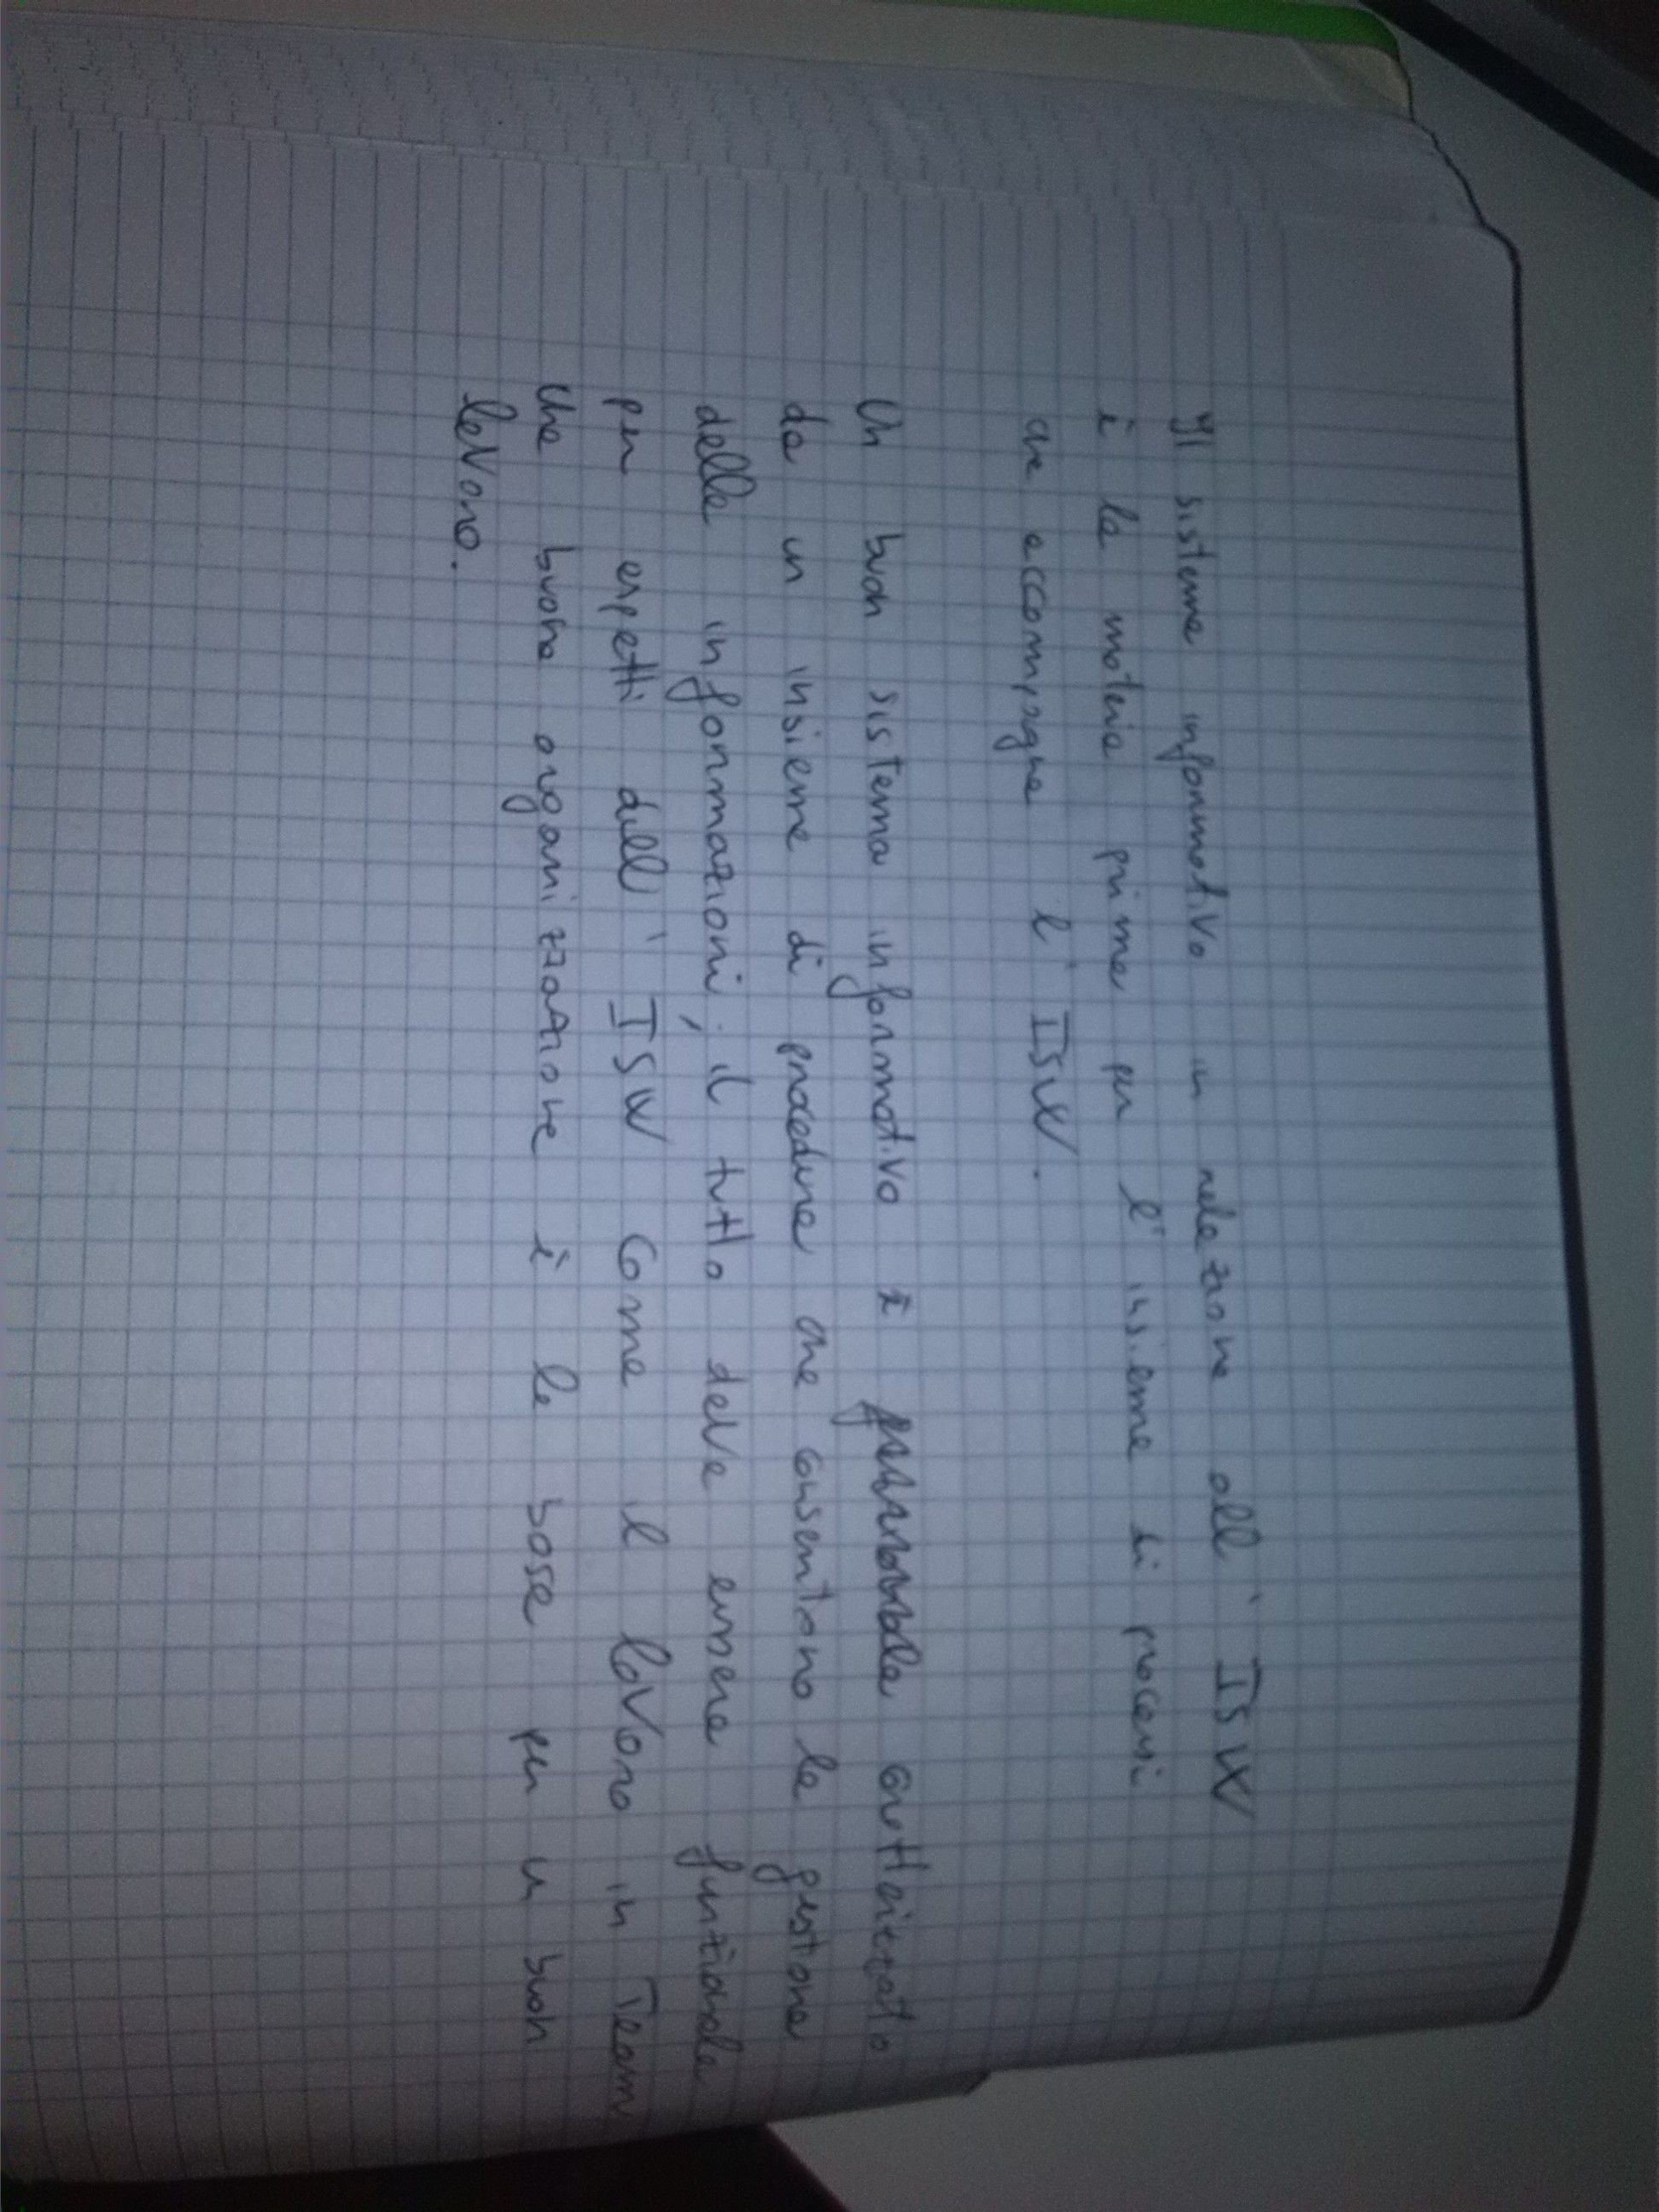 Il sistema informativo in relazione all' ISW
è la materia prima per l'insieme di processi
che accompagna l' ISW.
Un buon sistema informativo è caratterizzato
da un insieme di procedure che consentono la gestione
delle informazioni, il tutto deve essere funzionale
per aspetti dell' ISW come il lavoro in Team
una buona organizzazione è la base per un buon
lavoro.